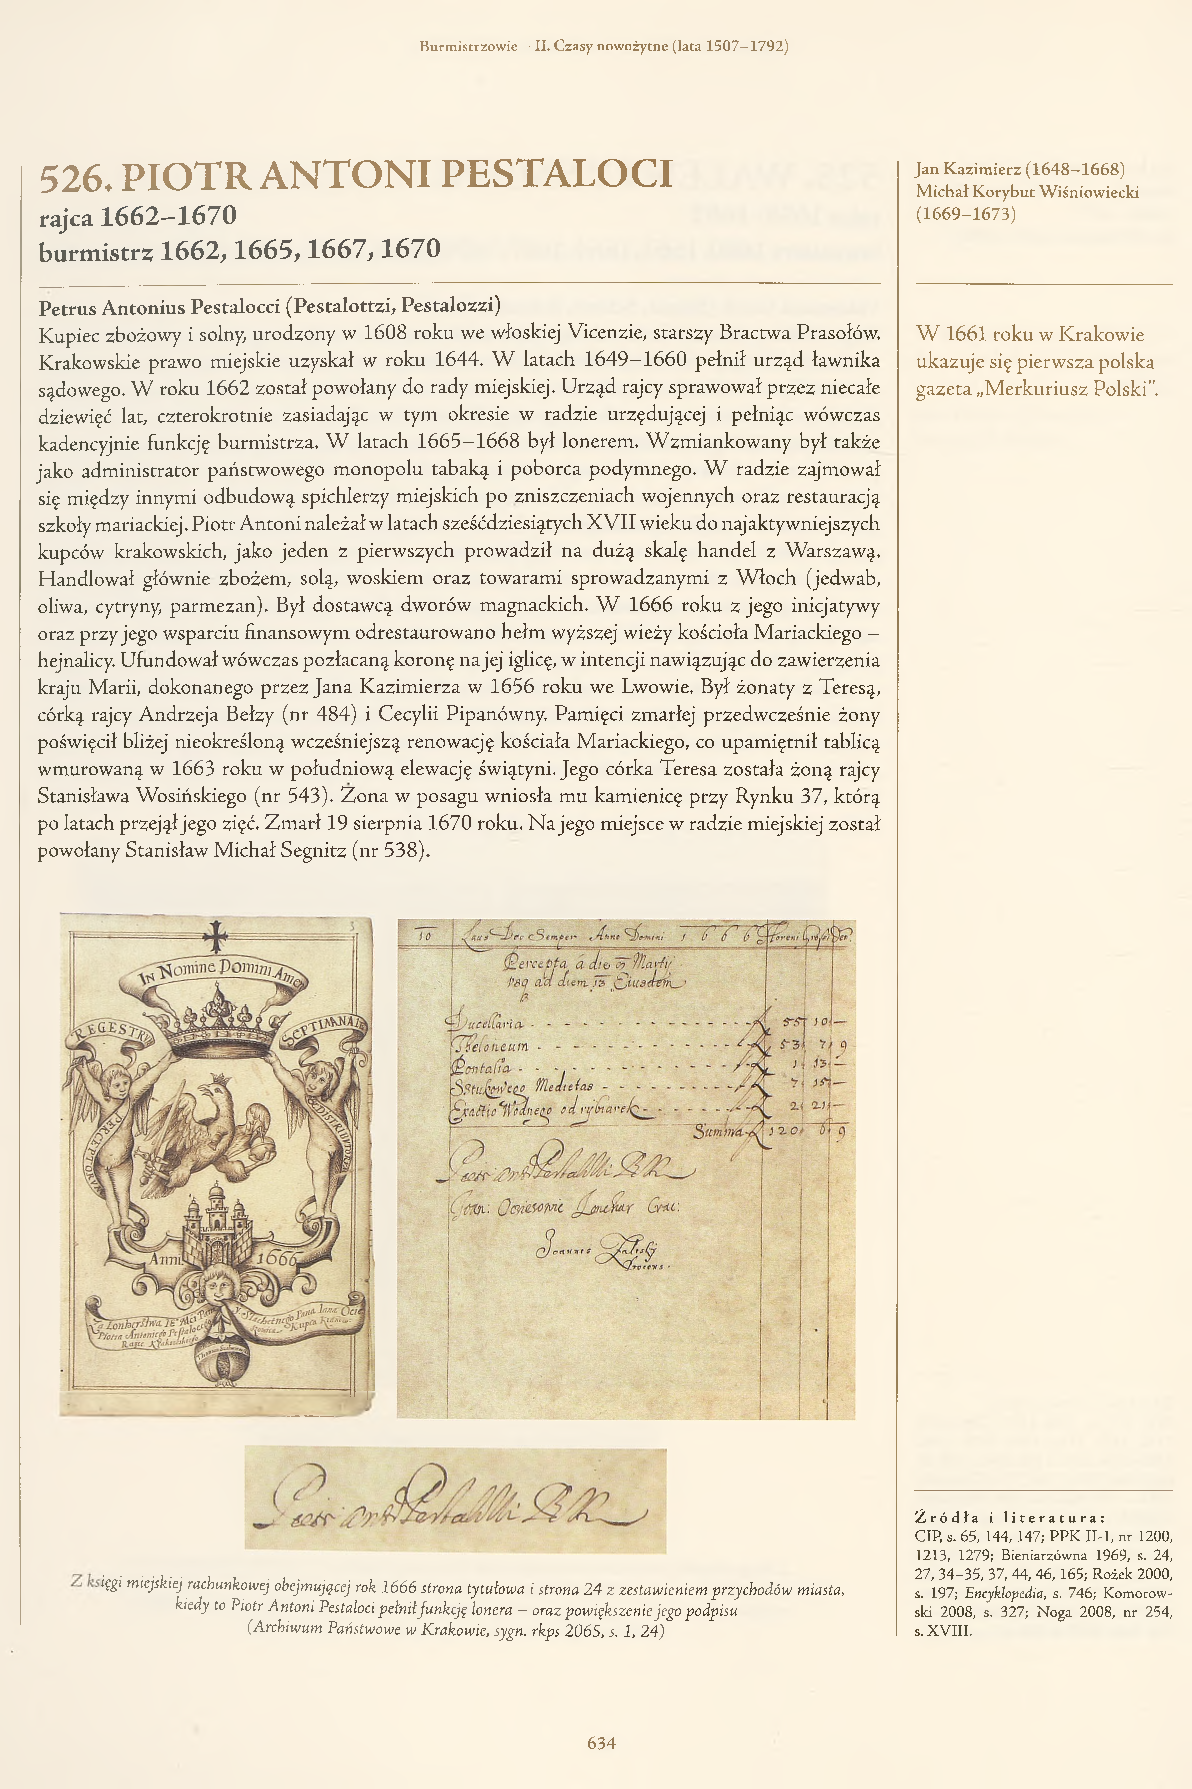 Burmistrzowie · II. Czasy nowożytne (lata 1507–1792)
526. PIOTR ANTONI PESTALOCI
rajca 1662–1670
burmistrz 1662, 1665, 1667, 1670
Petrus Antonius Pestalocci (Pestalottzi, Pestalozzi)
Kupiec zbożowy i solny, urodzony w 1608 roku we włoskiej Vicenzie, starszy Bractwa Prasołów.
Krakowskie prawo miejskie uzyskał w roku 1644. W latach 1649–1660 pełnił urząd ławnika
sądowego. W roku 1662 został powołany do rady miejskiej. Urząd rajcy sprawował przez niecałe
dziewięć lat, czterokrotnie zasiadając w tym okresie w radzie urzędującej i pełniąc wówczas
kadencyjnie funkcję burmistrza. W latach 1665–1668 był lonerem. Wzmiankowany był także
jako administrator państwowego monopolu tabaką i poborca podymnego. W radzie zajmował
się między innymi odbudową spichlerzy miejskich po zniszczeniach wojennych oraz restauracją
szkoły mariackiej. Piotr Antoni należał w latach sześćdziesiątych XVII wieku do najaktywniejszych
kupców krakowskich, jako jeden z pierwszych prowadził na dużą skalę handel z Warszawą.
Handlował głównie zbożem, solą, woskiem oraz towarami sprowadzanymi z Włoch (jedwab,
oliwa, cytryny, parmezan). Był dostawcą dworów magnackich. W 1666 roku z jego inicjatywy
oraz przy jego wsparciu finansowym odrestaurowano hełm wyższej wieży kościoła Mariackiego –
hejnalicy. Ufundował wówczas pozłacaną koronę na jej iglicę, w intencji nawiązując do zawierzenia
kraju Marii, dokonanego przez Jana Kazimierza w 1656 roku we Lwowie. Był żonaty z Teresą,
córką rajcy Andrzeja Bełzy (nr 484) i Cecylii Pipanówny. Pamięci zmarłej przedwcześnie żony
poświęcił bliżej nieokreśloną wcześniejszą renowację kościała Mariackiego, co upamiętnił tablicą
wmurowaną w 1663 roku w południową elewację świątyni. Jego córka Teresa została żoną rajcy
Stanisława Wosińskiego (nr 543). Żona w posagu wniosła mu kamienicę przy Rynku 37, którą
po latach przejął jego zięć. Zmarł 19 sierpnia 1670 roku. Na jego miejsce w radzie miejskiej został
powołany Stanisław Michał Segnitz (nr 538).
Jan Kazimierz (1648–1668)
Michał Korybut Wiśniowiecki
(1669–1673)
W 1661 roku w Krakowie
ukazuje się pierwsza polska
gazeta „Merkuriusz Polski".
3
IN Nomine Domini Amen
REGESTRV SEPTIMANALE
PERCEPTORV & DISTRIBVTORV
Anni 1666
Za Lonherstwa IE° Mci Pana
Piotra Antoniego Pestaloci
Raice Krakowskiego
10 Laus Deo Semper Anno Domini 1 6 6 6 Floreni Grossi Den:
Percepta á die 7 Martij
usq ad diem 13 Eiusdem
Ducellaria 55 10 —
Theloneum 53 7 9
Pontalia 1 13 —
Sztukowego Medietas 7 15 —
Exactio Wodnego od rybiarek 2 21 —
Summa 120 6 9
Piotr Anto Pestalloci R K
Joannes Zaleski
Z księgi miejskiej rachunkowej obejmującej rok 1666 strona tytułowa i strona 24 z zestawieniem przychodów miasta,
kiedy to Piotr Antoni Pestaloci pełnił funkcję lonera – oraz powiększenie jego podpisu
(Archiwum Państwowe w Krakowie, sygn. rkps 2065, s. 1, 24)
Źródła i literatura:
CIP, s. 65, 144, 147; PPK II-1, nr 1200,
1213, 1279; Bieniarzówna 1969, s. 24,
27, 34–35, 37, 44, 46, 165; Rożek 2000,
s. 197; Encyklopedia, s. 746; Komorow-
ski 2008, s. 327; Noga 2008, nr 254,
s. XVIII.
634